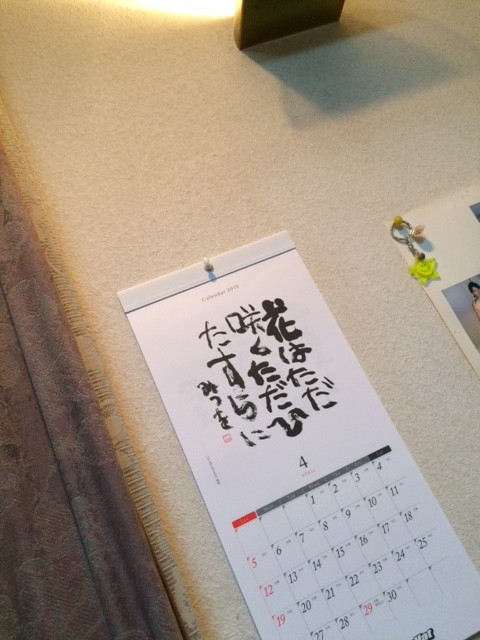 Calendar 2015
花はただ
咲くただひ
たすらに
みつを
4
1 2 3 4
5 6 7 8 9 10 11
12 13 14 15 16 17 18
19 20 21 22 23 24 25
27 28 29 30